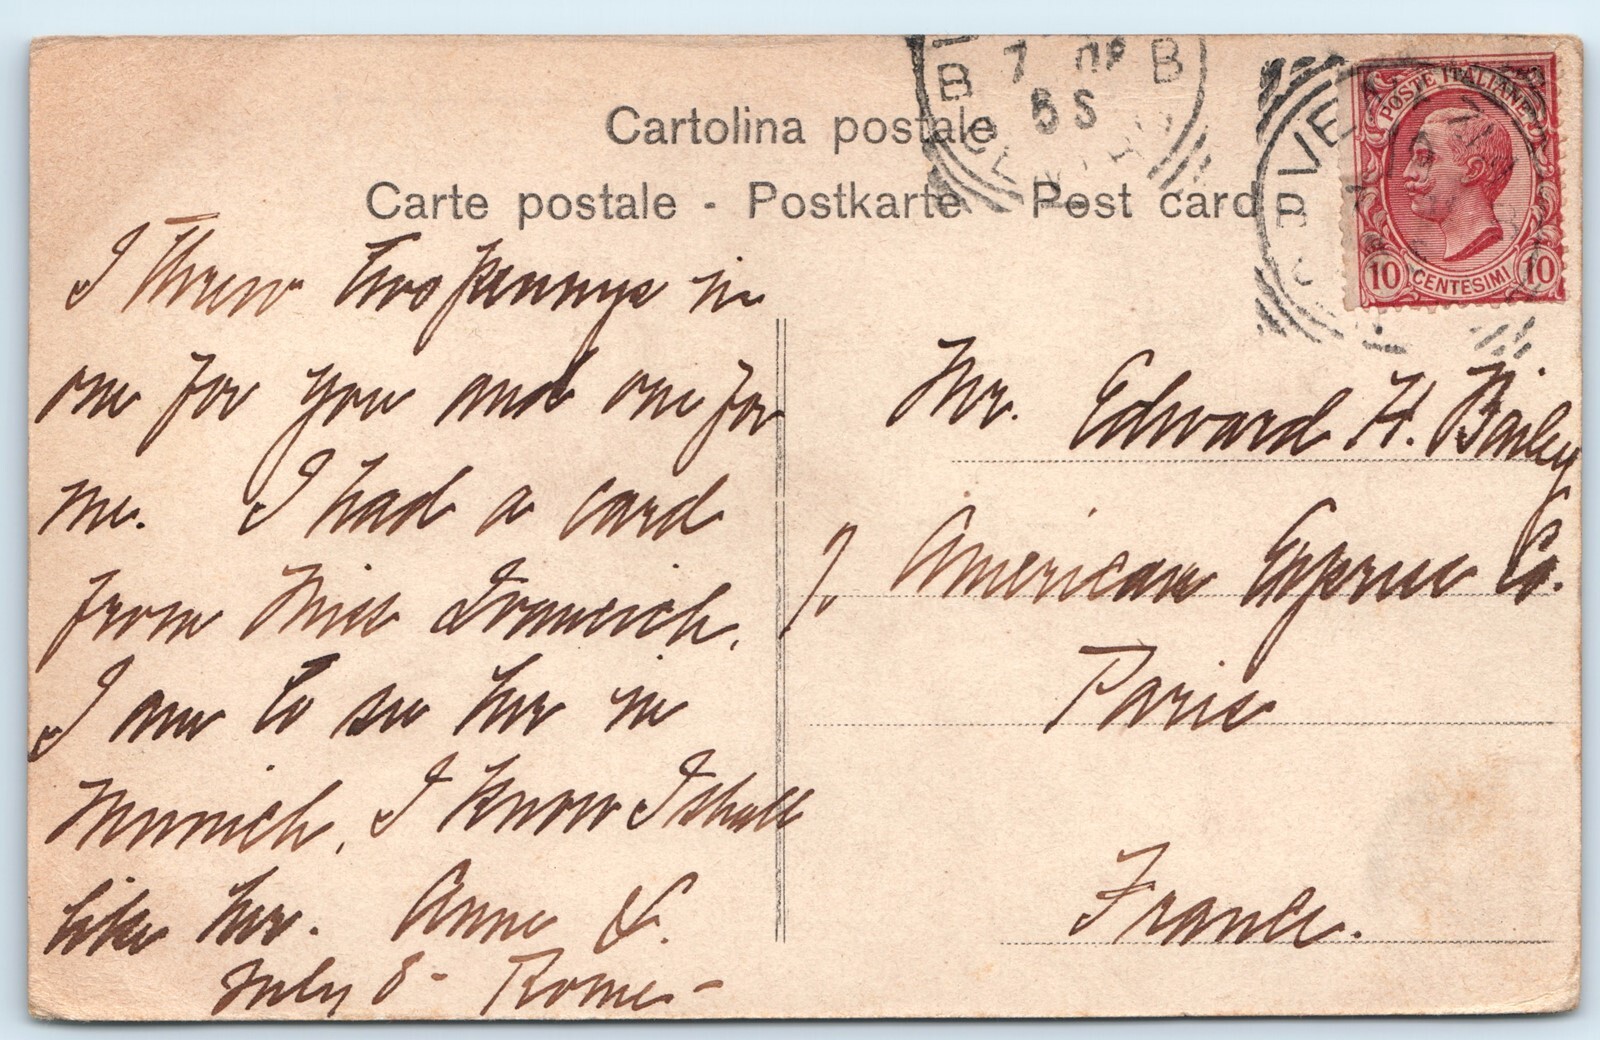 Cartolina postale
Carte postale - Postkarte - Post card
POSTE ITALIANE
10 CENTESIMI 10
B 7 B
5 S
I threw two pennys in
one for you and one for
me. I had a card
from Miss
I am to see her in
Munich, I know I shall
like her. Anne
July 8 - Rome -
Mr. Edward H. Bailey
American Express Co.
Paris
France.